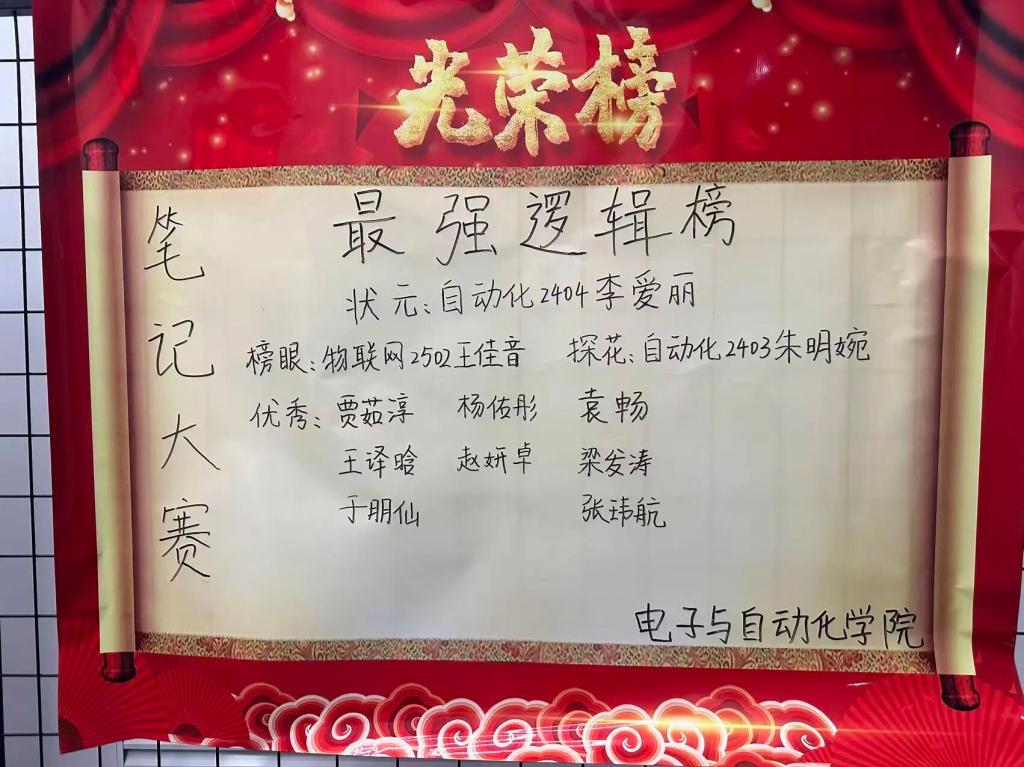 光荣榜
笔记大赛
最强逻辑榜
状元:自动化2404李爱丽
榜眼:物联网2502王佳音 探花:自动化2403朱明婉
优秀:贾茹淳 杨佑彤 袁畅
王译晗 赵妍卓 梁发涛
于朋仙 张玮航
电子与自动化学院